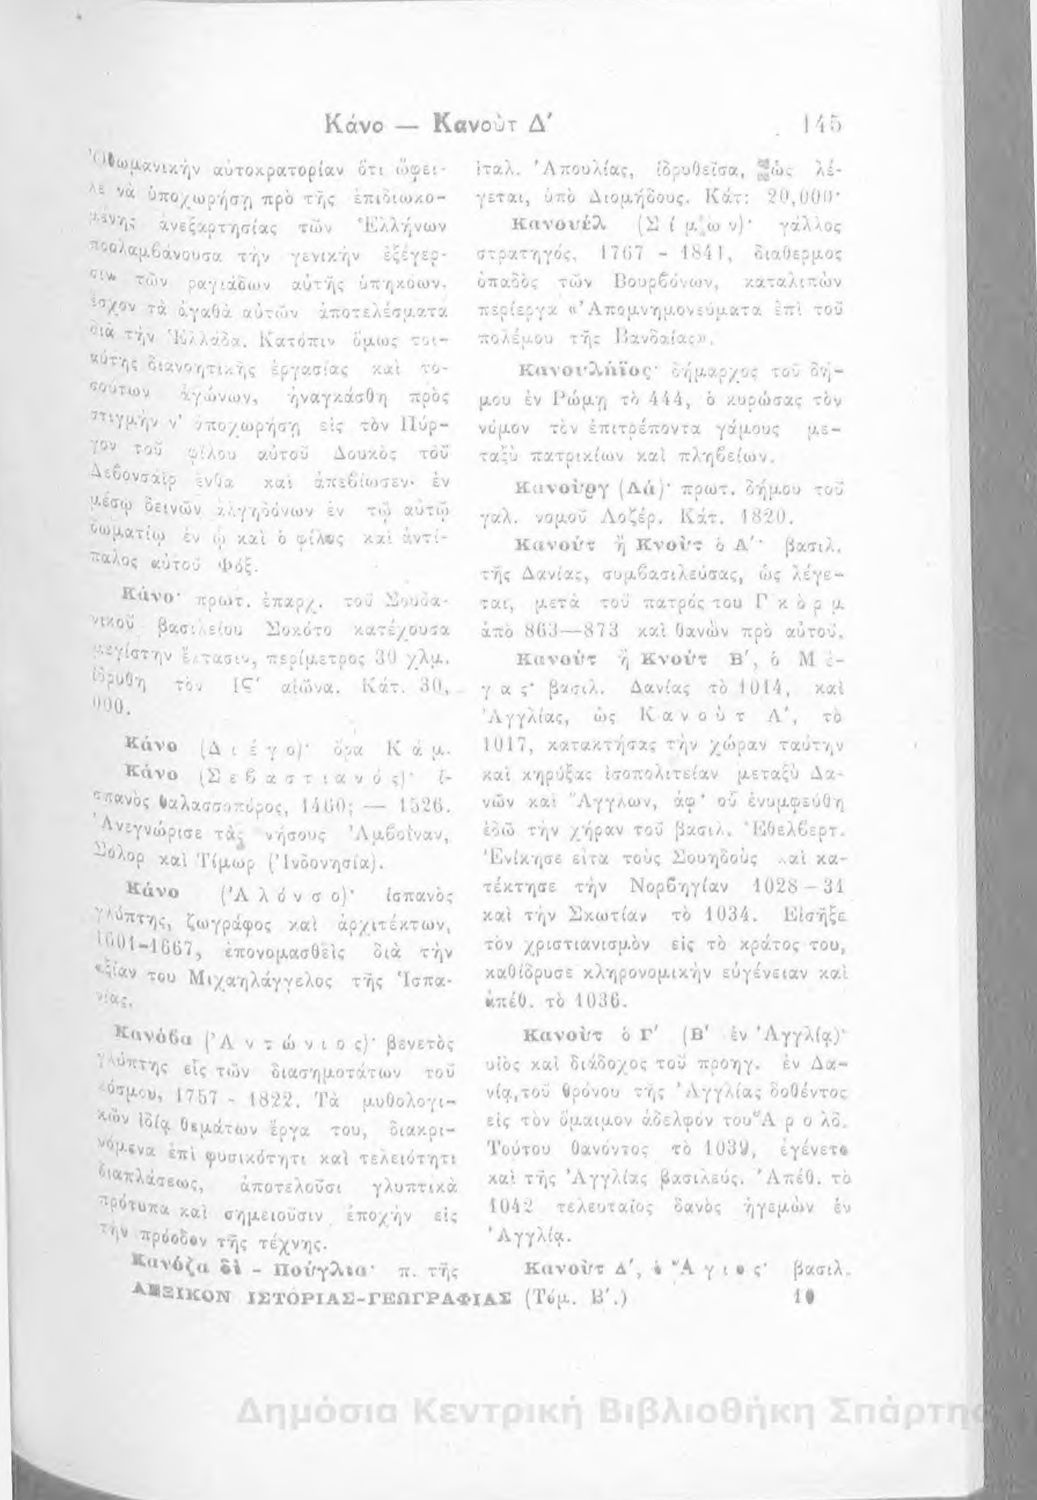 Κάνο — Κανούτ Δ΄ 145
Ὀθωμανικὴν αὐτοκρατορίαν ὅτι ὤφει-
λε νὰ ὑποχωρήσῃ πρὸ τῆς ἐπιδιωκο-
μένης ἀνεξαρτησίας τῶν Ἑλλήνων
προλαμβάνουσα τὴν γενικὴν ἐξέγερ-
σιν τῶν ραγιάδων αὐτῆς ὑπηκόων,
ἔσχον τὰ ἀγαθὰ αὐτῶν ἀποτελέσματα
διὰ τὴν Ἑλλάδα. Κατόπιν ὅμως τοι-
αύτης διανοητικῆς ἐργασίας καὶ το-
σούτων ἀγώνων, ἠναγκάσθη πρὸς
στιγμὴν ν' ὑποχωρήσῃ εἰς τὸν Πύρ-
γον τοῦ φίλου αὐτοῦ Δουκὸς τοῦ
Δεβονσάϊρ ἔνθα καὶ ἀπεβίωσεν· ἐν
μέσῳ δεινῶν ἀλγηδόνων ἐν τῷ αὐτῷ
δωματίῳ ἐν ᾧ καὶ ὁ φίλος καὶ ἀντί-
παλος αὐτοῦ Φόξ.
Κάνο· πρωτ. ἐπαρχ. τοῦ Σουδα-
νικοῦ βασιλείου Σοκότο κατέχουσα
μεγίστην ἔκτασιν, περίμετρος 30 χλμ.
ἱδρύθη τὸν Ιϛ' αἰῶνα. Κάτ. 30,
000.
Κάνο (Διέγο)· ὅρα Κάμ.
Κάνο (Σεβαστιανός)· ἱ-
σπανὸς θαλασσοπόρος, 1460; — 1526.
Ἀνεγνώρισε τὰς νήσους Ἀμβοΐναν,
Σόλορ καὶ Τίμωρ (Ἰνδονησία).
Κάνο (Ἀλόνσο)· ἱσπανὸς
γλύπτης, ζωγράφος καὶ ἀρχιτέκτων,
1601-1667, ἐπονομασθεὶς διὰ τὴν
ἀξίαν του Μιχαηλάγγελος τῆς Ἱσπα-
νίας.
Κανόβα (Ἀντώνιος)· βενετὸς
γλύπτης εἷς τῶν διασημοτάτων τοῦ
κόσμου, 1757 - 1822. Τὰ μυθολογι-
κῶν ἰδίᾳ θεμάτων ἔργα του, διακρι-
νόμενα ἐπὶ φυσικότητι καὶ τελειότητι
διαπλάσεως, ἀποτελοῦσι γλυπτικὰ
πρότυπα καὶ σημειοῦσιν ἐποχὴν εἰς
τὴν πρόοδον τῆς τέχνης.
Κανόζα δὶ - Πούγλια· π. τῆς
ἰταλ. Ἀπουλίας, ἱδρυθεῖσα, ὡς λέ-
γεται, ὑπὸ Διομήδους. Κάτ: 20,000·
Κανουέλ (Σίμων)· γάλλος
στρατηγός, 1767 - 1841, διάθερμος
ὀπαδὸς τῶν Βουρβόνων, καταλιπὼν
περίεργα «Ἀπομνημονεύματα ἐπὶ τοῦ
πολέμου τῆς Βανδαίας».
Κανουλήϊος· δήμαρχος τοῦ δή-
μου ἐν Ῥώμῃ τὸ 444, ὁ κυρώσας τὸν
νόμον τὸν ἐπιτρέποντα γάμους με-
ταξὺ πατρικίων καὶ πληβείων.
Κανούργ (Λά)· πρωτ. δήμου τοῦ
γαλ. νομοῦ Λοζέρ. Κάτ. 1820.
Κανούτ ἢ Κνούτ ὁ Α΄· βασιλ.
τῆς Δανίας, συμβασιλεύσας, ὡς λέγε-
ται, μετὰ τοῦ πατρός του Γκόρμ
ἀπὸ 863—873 καὶ θανὼν πρὸ αὐτοῦ.
Κανούτ ἢ Κνούτ Β΄, ὁ Μέ-
γας· βασιλ. Δανίας τὸ 1014, καὶ
Ἀγγλίας, ὡς Κανούτ Α΄, τὸ
1017, κατακτήσας τὴν χώραν ταύτην
καὶ κηρύξας ἰσοπολιτείαν μεταξὺ Δα-
νῶν καὶ Ἄγγλων, ἀφ' οὗ ἐνυμφεύθη
ἐδῶ τὴν χήραν τοῦ βασιλ. Ἐθελβερτ.
Ἐνίκησε εἶτα τοὺς Σουηδοὺς καὶ κα-
τέκτησε τὴν Νορβηγίαν 1028 – 31
καὶ τὴν Σκωτίαν τὸ 1034. Εἰσῆξε
τὸν χριστιανισμὸν εἰς τὸ κράτος του,
καθίδρυσε κληρονομικὴν εὐγένειαν καὶ
ἀπέθ. τὸ 1036.
Κανούτ ὁ Γ΄ (Β΄ ἐν Ἀγγλίᾳ)·
υἱὸς καὶ διάδοχος τοῦ προηγ. ἐν Δα-
νίᾳ, τοῦ θρόνου τῆς Ἀγγλίας δοθέντος
εἰς τὸν ὅμαιμον ἀδελφόν του Ἀρολδ.
Τούτου θανόντος τὸ 1039, ἐγένετο
καὶ τῆς Ἀγγλίας βασιλεύς. Ἀπέθ. τὸ
1042 τελευταῖος δανὸς ἡγεμὼν ἐν
Ἀγγλίᾳ.
Κανούτ Δ΄, ὁ Ἅγιος· βασιλ.
ΛΕΞΙΚΟΝ ΙΣΤΟΡΙΑΣ-ΓΕΩΓΡΑΦΙΑΣ (Τόμ. Β΄.) 10
Δημόσια Κεντρική Βιβλιοθήκη Σπάρτης